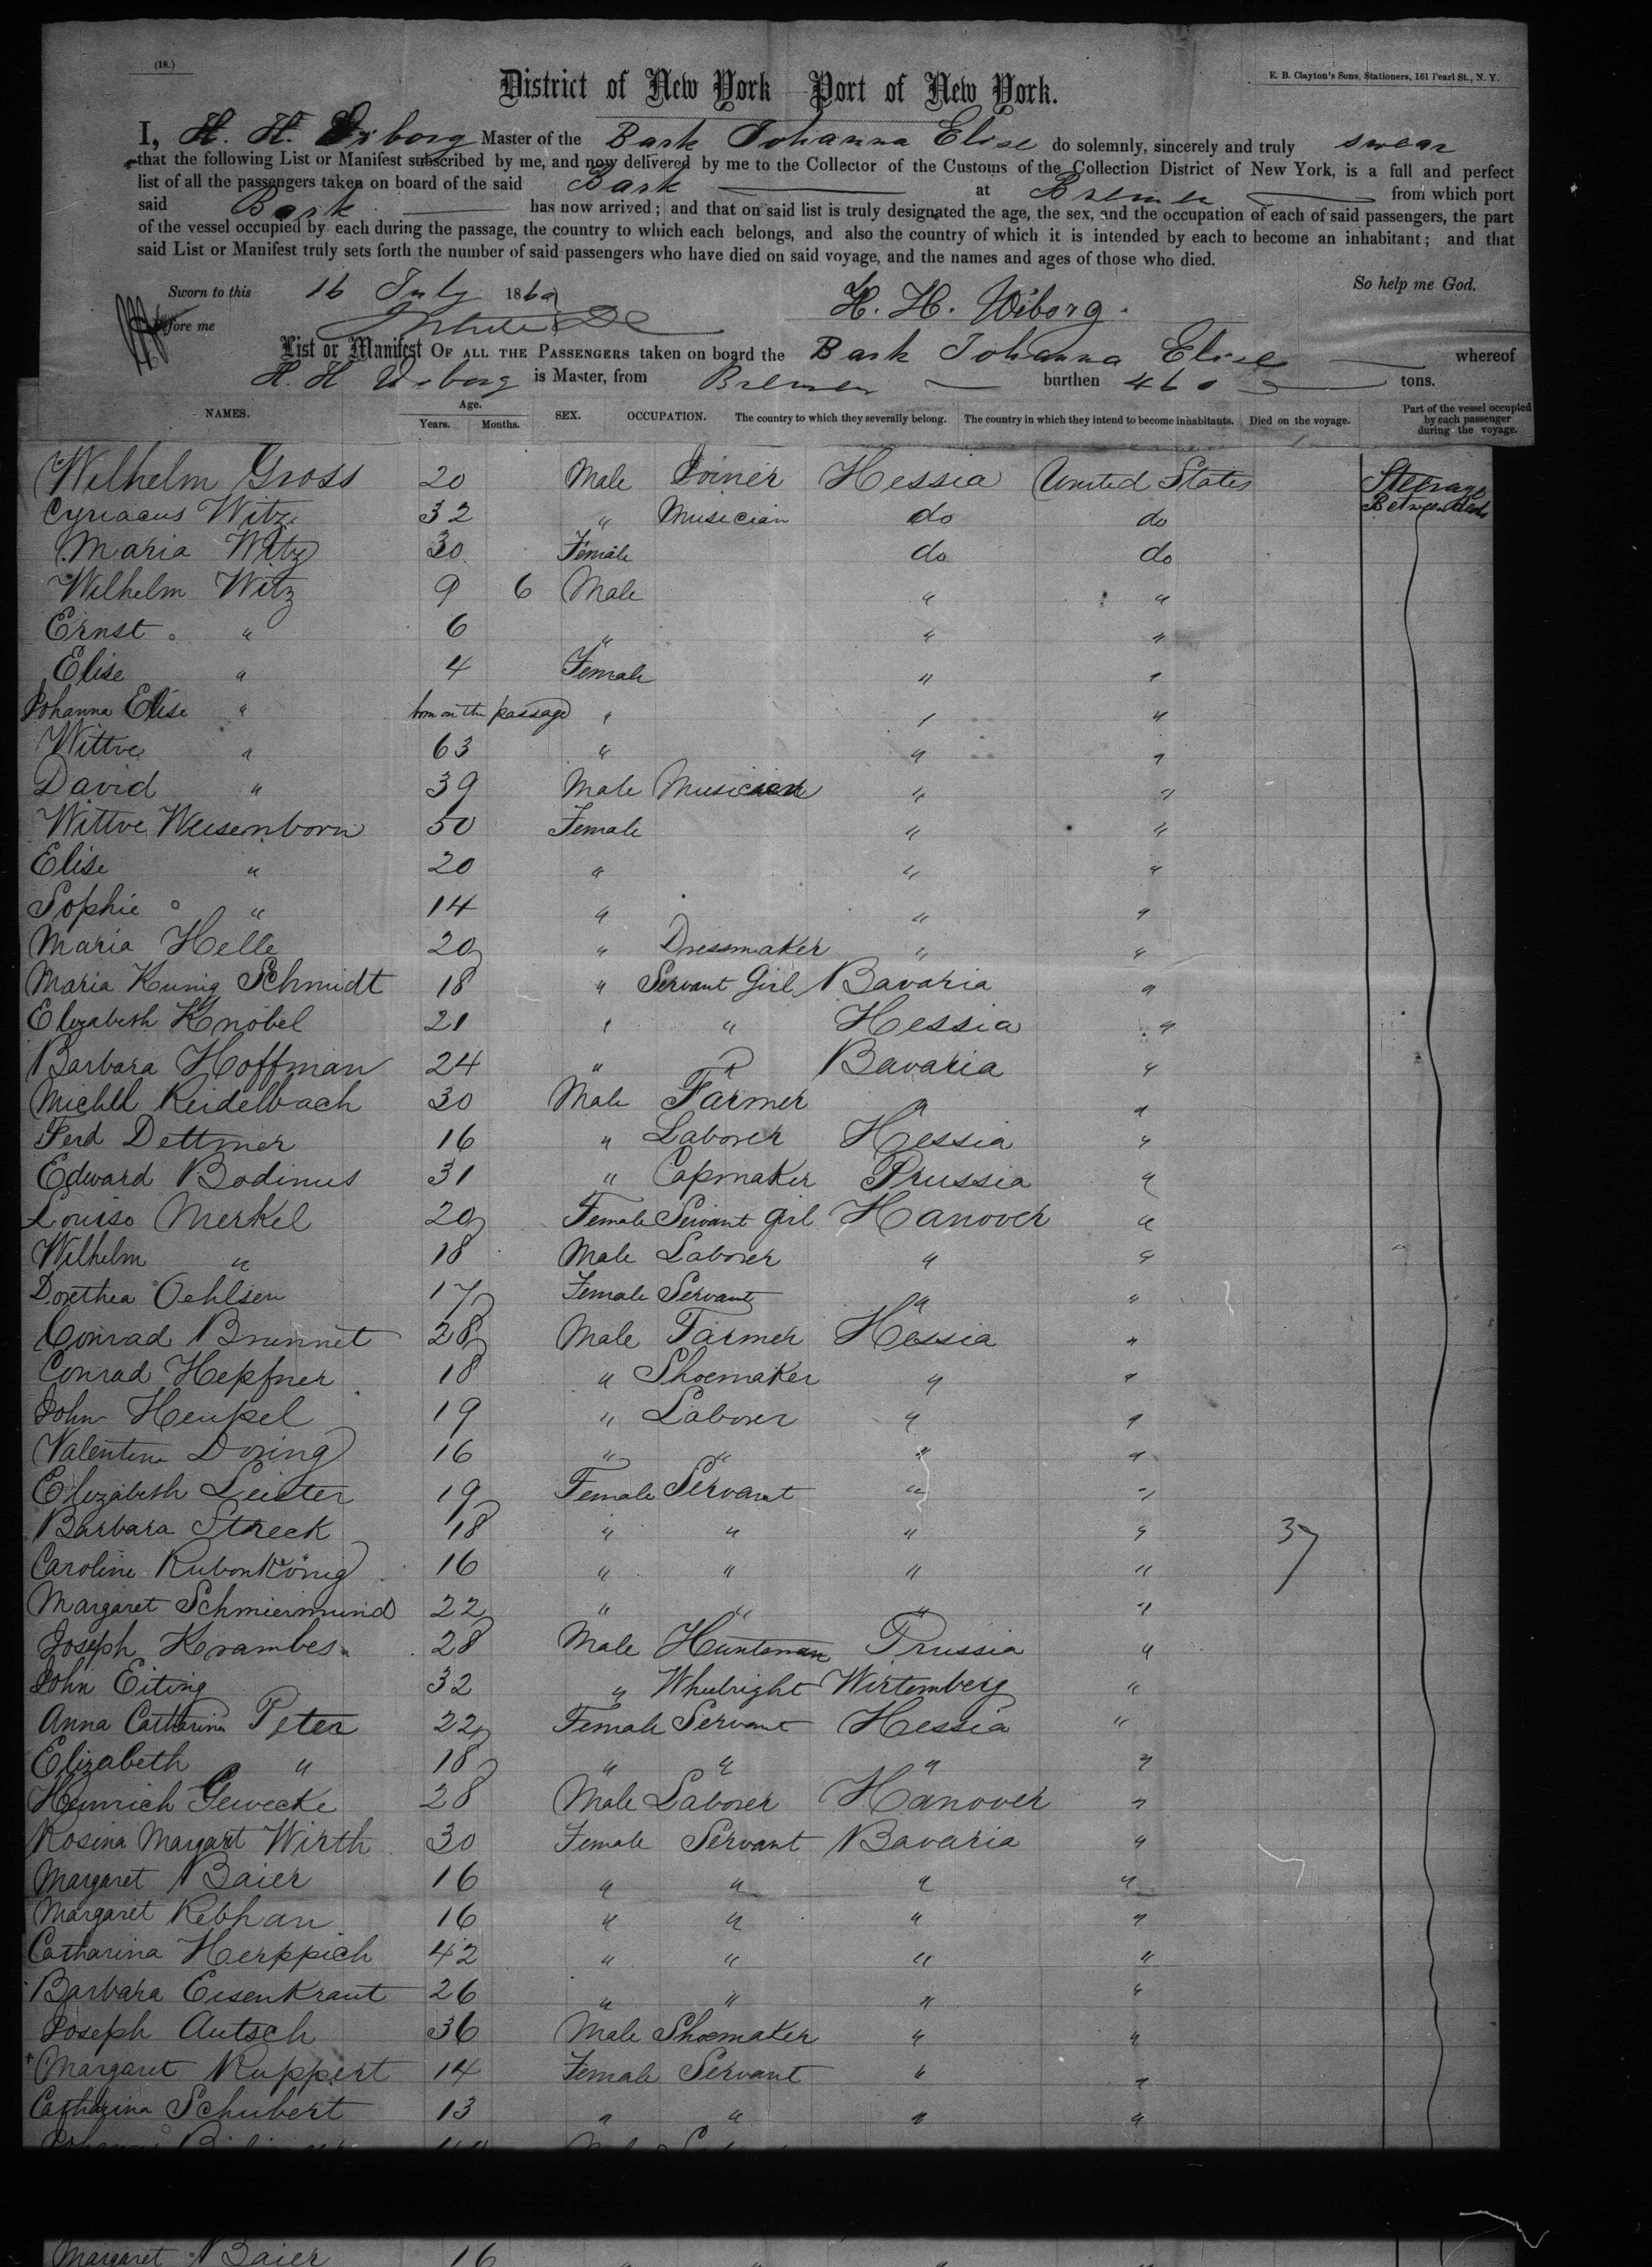 (18.)
E. B. Clayton's Sons, Stationers, 161 Pearl St., N. Y.
District of New York Port of New York.
I, H. H. Wiborg Master of the Bark Johanna Elise do solemnly, sincerely and truly swear
that the following List or Manifest subscribed by me, and now delivered by me to the Collector of the Customs of the Collection District of New York, is a full and perfect
list of all the passengers taken on board of the said Bark at Bremen from which port
said Bark has now arrived; and that on said list is truly designated the age, the sex, and the occupation of each of said passengers, the part
of the vessel occupied by each during the passage, the country to which each belongs, and also the country of which it is intended by each to become an inhabitant; and that
said List or Manifest truly sets forth the number of said passengers who have died on said voyage, and the names and ages of those who died.
Sworn to this 16 July 1869 So help me God.
Before me H. H. Wiborg.
List or Manifest OF ALL THE PASSENGERS taken on board the Bark Johanna Elise whereof
H. H Wiborg is Master, from Bremen burthen 460 tons.
NAMES. Age. Years. Months. SEX. OCCUPATION. The country to which they severally belong. The country in which they intend to become inhabitants. Died on the voyage. Part of the vessel occupied by each passenger during the voyage.
Wilhelm Gross 20 Male Joiner Hessia United States Steerage
Cyriacus Witz 32 " Musician do do Between decks
Maria Witz 30 Female do do
Wilhelm Witz 9 6 Male " "
Ernst " 6 " " "
Elise " 4 Female " "
Johanna Elise " born on the passage " " "
Wittve " 63 " " "
David " 39 Male Musician " "
Wittve Weisenborn 50 Female " "
Elise " 20 " " "
Sophie " 14 " " "
Maria Helle 20 " Dressmaker " "
Maria Kunig Schmidt 18 " Servant Girl Bavaria "
Elizabeth Knobel 21 " " Hessia "
Barbara Hoffman 24 " " Bavaria "
Michll Reidelbach 30 Male Farmer " "
Ferd Dettmer 16 " Laborer Hessia "
Edward Bodinus 31 " Capmaker Prussia "
Louise Merkel 20 Female Servant girl Hanover "
Wilhelm " 18 Male Laborer " "
Dorethea Oehlsen 17 Female Servant " "
Conrad Brunnet 28 Male Farmer Hessia "
Conrad Hepfner 18 " Shoemaker " "
John Heupel 19 " Laborer " "
Valentin Doring 16 " " " "
Elizabeth Leister 19 Female Servant " "
Barbara Streck 18 " " " " 37
Caroline Rubonkönig 16 " " " "
Margaret Schmiermund 22 " " " "
Joseph Krambes 28 Male Huntsman Prussia "
John Eiting 32 " Wheelright Wirtemberg "
Anna Catharina Peter 22 Female Servant Hessia "
Elizabeth " 18 " " " "
Heinrich Gewecke 28 Male Laborer Hanover "
Rosina Margaret Wirth 30 Female Servant Bavaria "
Margaret Baier 16 " " " "
Margaret Rebhan 16 " " " "
Catharina Herppich 42 " " " "
Barbara Eisenkraut 26 " " " "
Joseph Autsch 36 Male Shoemaker " "
Margaret Ruppert 14 Female Servant " "
Catharina Schubert 13 " " " "
Margaret Baier 16